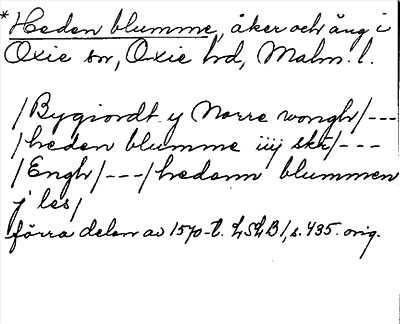 *Heden blumme, åker och äng i
Oxie sn, Oxie hd, Malm. l.
/Bygiordt y Norre wongh/---
/heden blumme iiij skr/---
/Engh/---/hedenn blummen
j les/
förra delen av 1570-t. LSLB1, s. 435. orig.